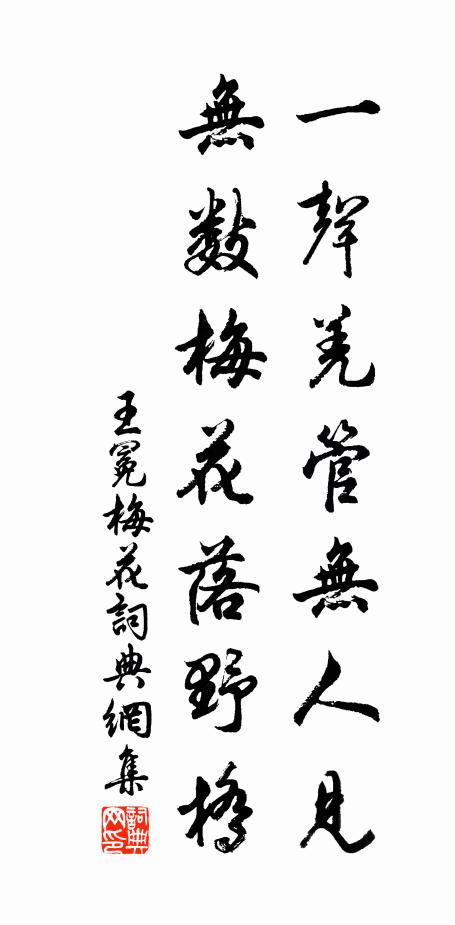 一聲羌管無人見
無數梅花落野橋
王冕梅花詞典網集
詞典
网印